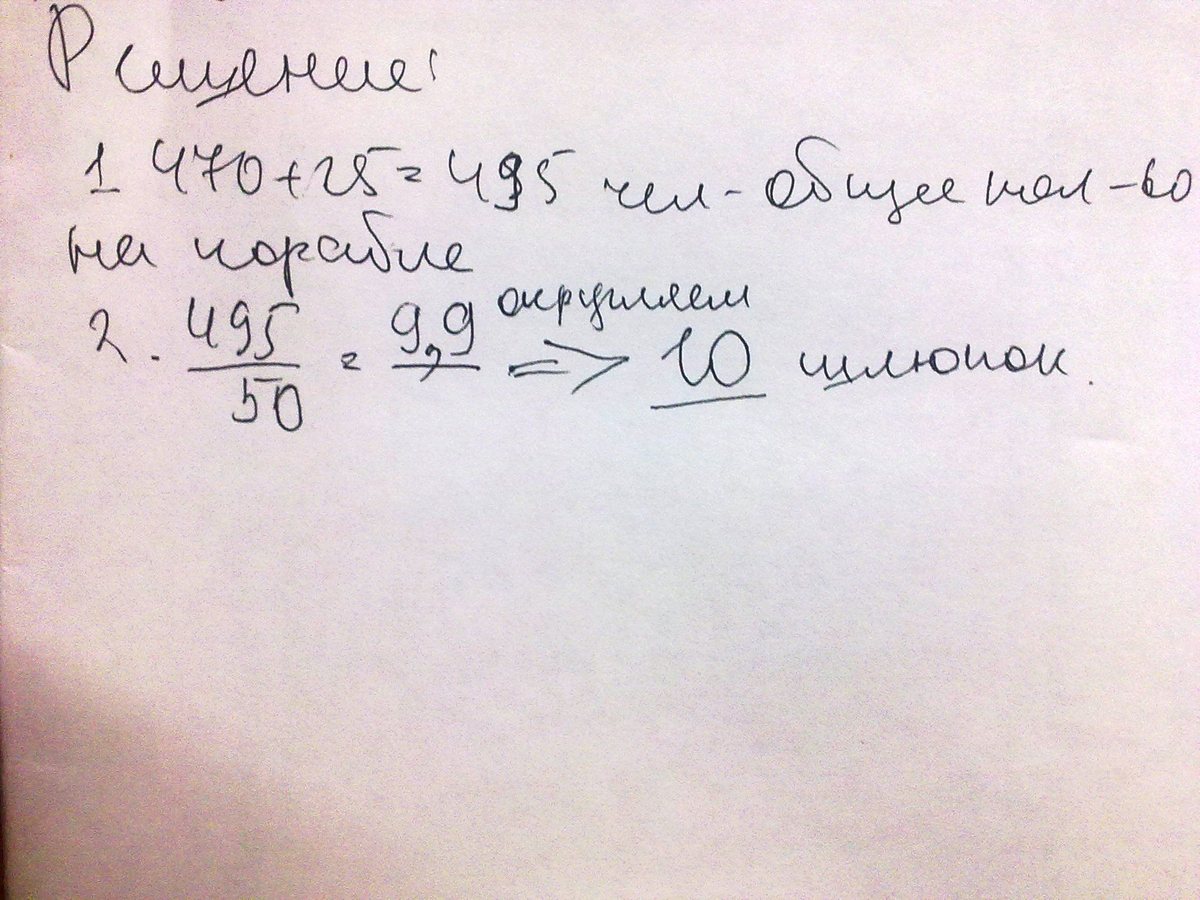 Решение:
1 470+25=495 чел - общее кол-во
на корабле
2. 495/50 = 9,9 округляем => 10 шлюпок.